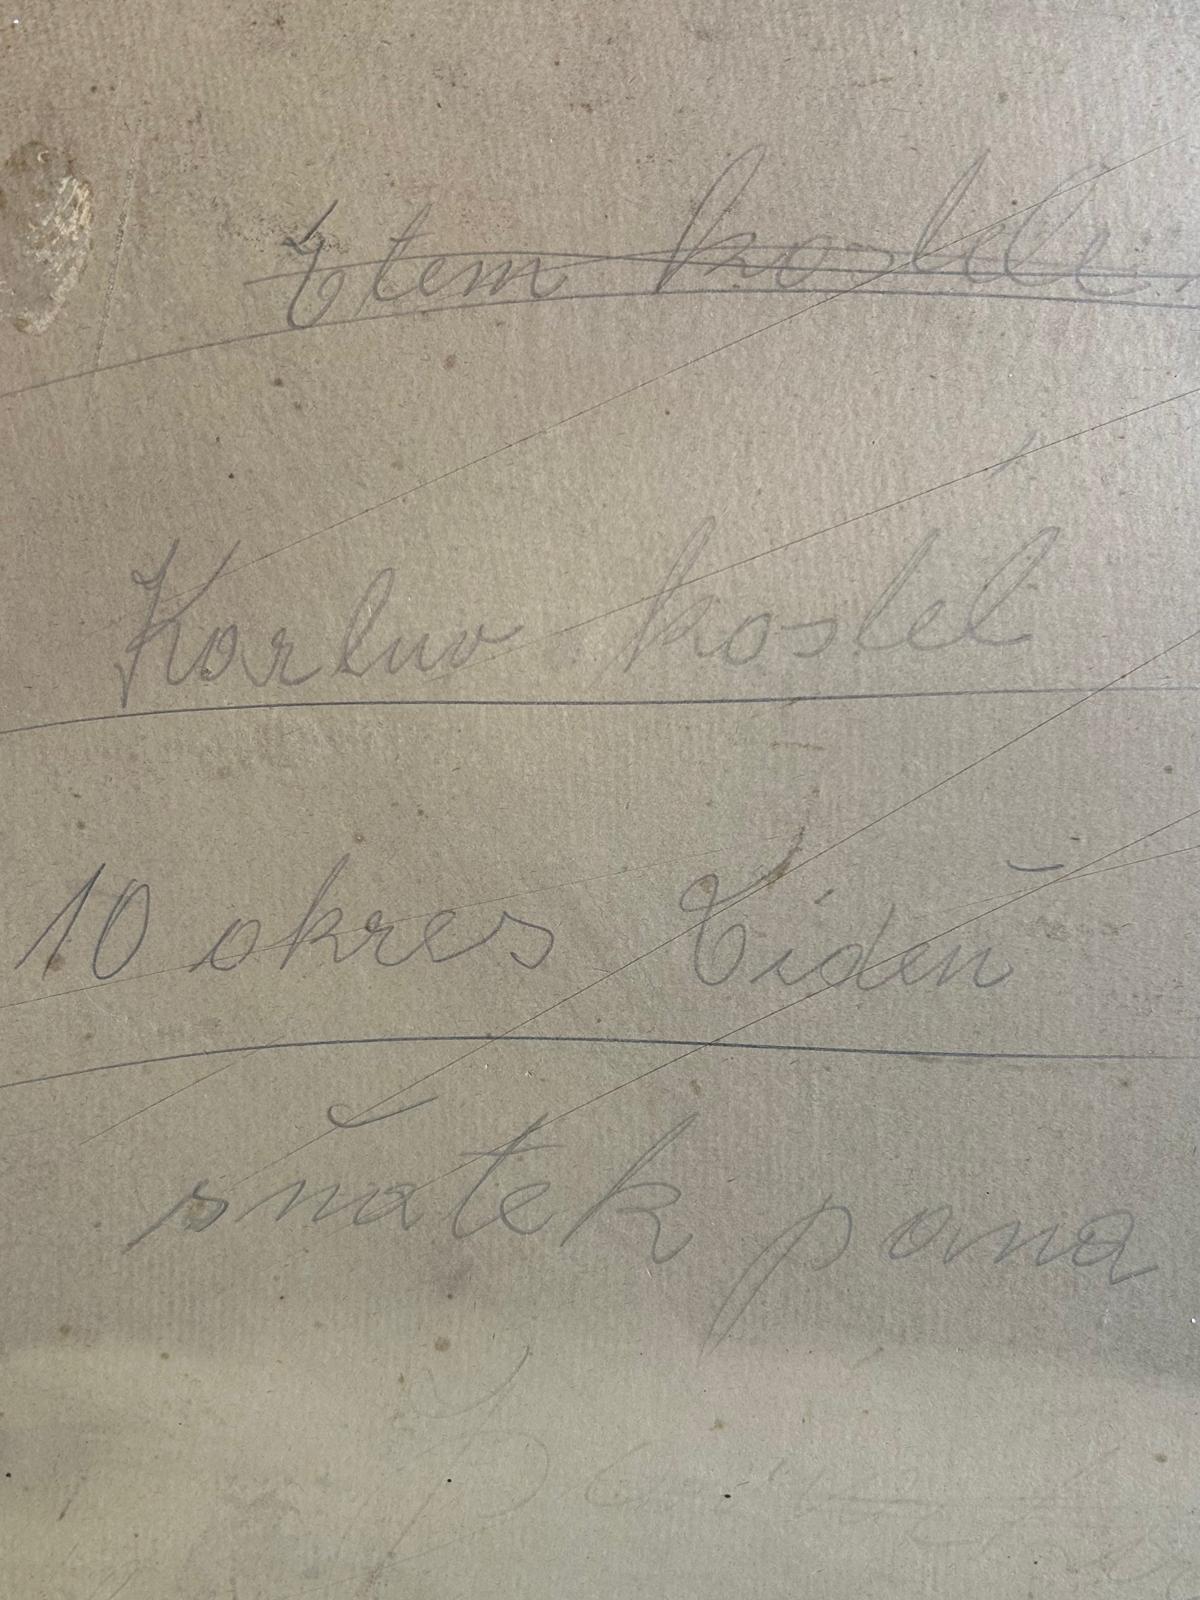 V tem kostele
Karluv kostel
10 okres Vídeň
sňatek pana